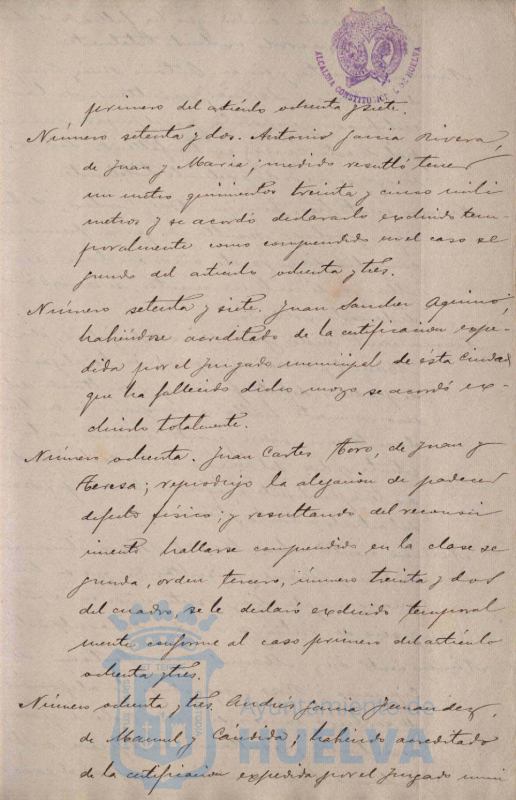 ALCALDIA CONSTITUCIONAL DE HUELVA
primero del artículo ochenta y siete.
Número setenta y dos. Antonio Garcia Rivera,
de Juan y Maria; medido resultó tener
un metro quinientos treinta y cinco mili
metros y se acordó declararlo excluido tem-
poralmente como comprendido en el caso se
gundo del artículo ochenta y tres.
Número setenta y siete. Juan Sanchez Aquino,
habiéndose acreditado de la certificacion expe-
dida por el Juzgado municipal de esta Ciudad
que ha fallecido dicho mozo se acordó ex-
cluirlo totalmente.
Número ochenta. Juan Cortes Toro, de Juan y
Teresa; reprodujo la alegacion de padecer
defecto físico; y resultando del reconoci
miento hallarse comprendido en la clase se
gunda, orden tercero, número treinta y dos
del cuadro, se le declaró excluido temporal
mente conforme al caso primero del artículo
ochenta y tres.
Número ochenta y tres. Andrés Garcia Fernandez,
de Manuel y Cándida; habiendo acreditado
de la certificacion expedida por el Juzgado muni
Ayuntamiento de
HUELVA